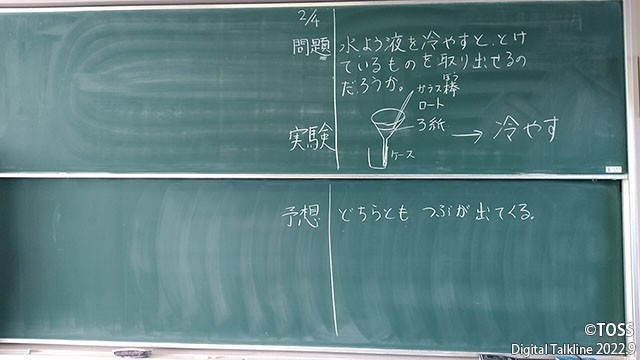 2/4
問題
水よう液を冷やすと、とけ
ているものを取り出せるの
だろうか。
実験
ガラス棒
ぼう
ロート
ろ紙
ケース
→ 冷やす
予想
どちらとも つぶが出てくる。
©TOSS
Digital Talkline 2022.9